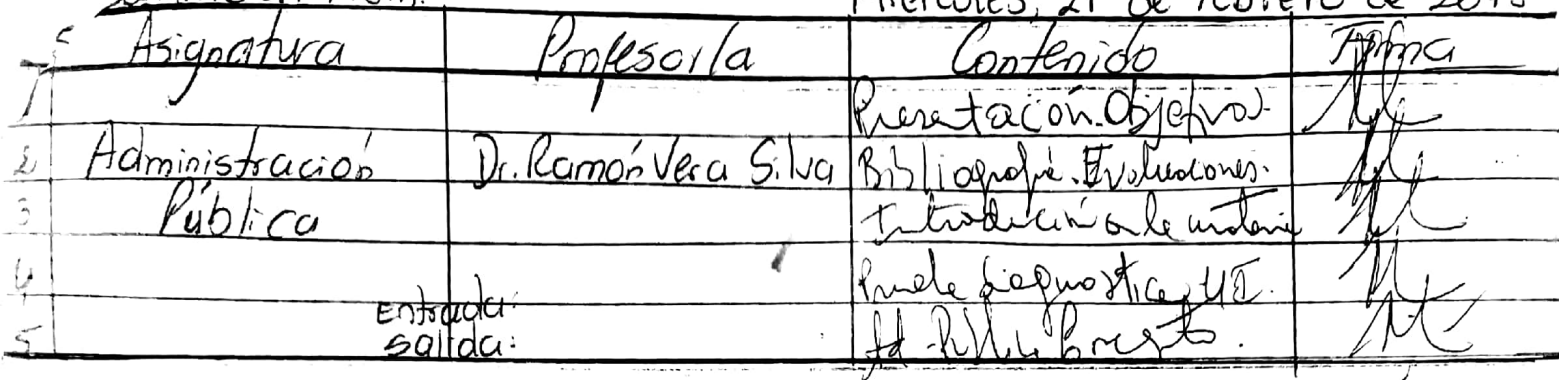 Miércoles, 21 de febrero de 2018
Asignatura Profesor/a Contenido Firma
1 Presentación. Objetivos.
2 Administración Dr. Ramón Vera Silva Bibliografía. Evaluaciones.
3 Pública Introducción a la materia
4 Prueba diagnostica, UI.
Entrada:
5 Salida: Ad. Pública